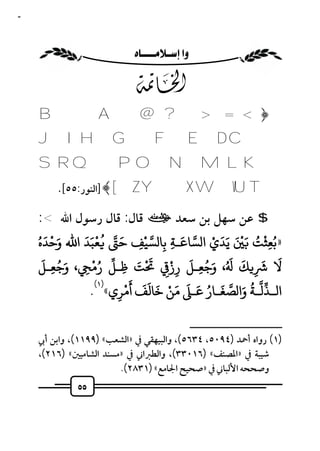 وا إسلامـــاه
الخاتمة
﴿ > = < ? @ A B
C D E F G H I J
K L M N O P Q R S
T U V W X Y Z [ ﴾ [النور: ٥٥].
$ عن سهل بن سعد ﷺ قال: قال رسول الله < :
«بُعِثْتُ بَيْنَ يَدَيِ السَّاعَـةِ بِالسَّيْفِ حَتَّى يُعْبَدَ اللهُ وَحْدَهُ
لَا شَرِيكَ لَهُ، وَجُعِـلَ رِزْقِي تَحْتَ ظِـلِّ رُمْحِي، وَجُعِـلَ
الـذِّلَّـةُ وَالصَّـغَـارُ عَـلَـى مَنْ خَالَفَ أَمْرِي»(١).
(١) رواه أحمد (٥٠٩٤، ٥٦٣٤)، والبيهقي في «الشعب» (١١٩٩)، وابن أبي
شيبة في «المصنف» (٣٣٠١٦)، والطبراني في «مسند الشاميين» (٢١٦)،
وصححه الألباني في «صحيح الجامع» (٢٨٣١).
٥٥